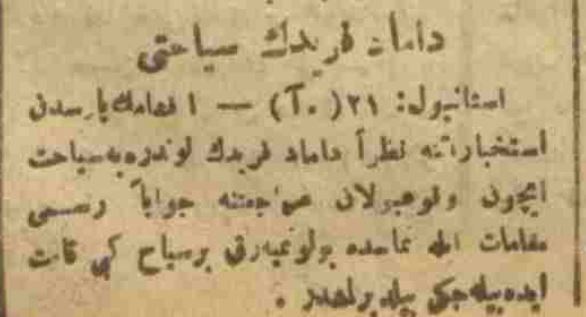 داماد فریدك سیاحتی
استانبول: ٢١ (T.) — اقدامك پارسدن
استخباراتنه نظراً داماد فریدك لوندره‌یه سیاحت
ایچون وقوعبولان مراجعتنه جواباً رسمی
مقامات ایله تماسده بولونمیه‌رق برسیاح كبی
ایده‌بیله‌جكی بیلدیرلمشدر .